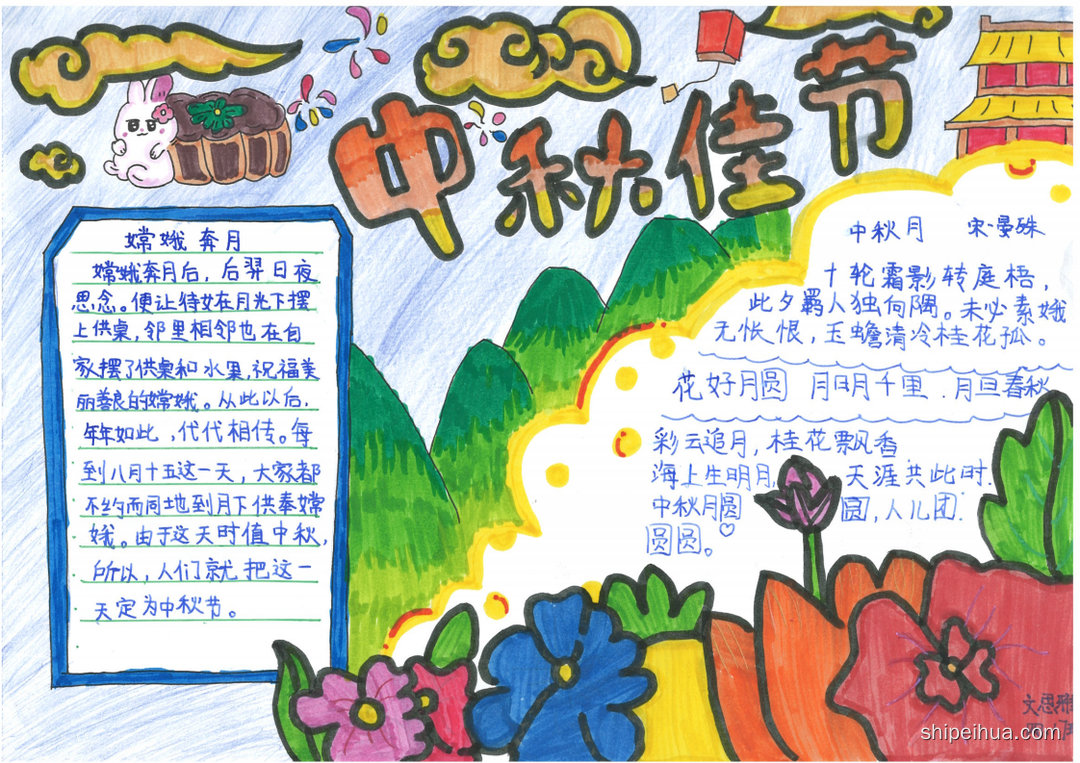 中秋佳节
嫦娥奔月
嫦娥奔月后，后羿日夜
思念。便让侍女在月光下摆
上供桌，邻里相邻也在自
家摆了供桌和水果，祝福美
丽善良的嫦娥。从此以后，
年年如此，代代相传。每
到八月十五这一天，大家都
不约而同地到月下供奉嫦
娥。由于这天时值中秋，
所以，人们就把这一
天定为中秋节。
中秋月 宋·晏殊
十轮霜影转庭梧，
此夕羁人独向隅。未必素娥
无怅恨，玉蟾清冷桂花孤。
花好月圆 月明千里．月旦春秋
彩云追月，桂花飘香
海上生明月，天涯共此时．
中秋月圆 圆，人儿团．
圆圆。
文思雅
shipeihua.com